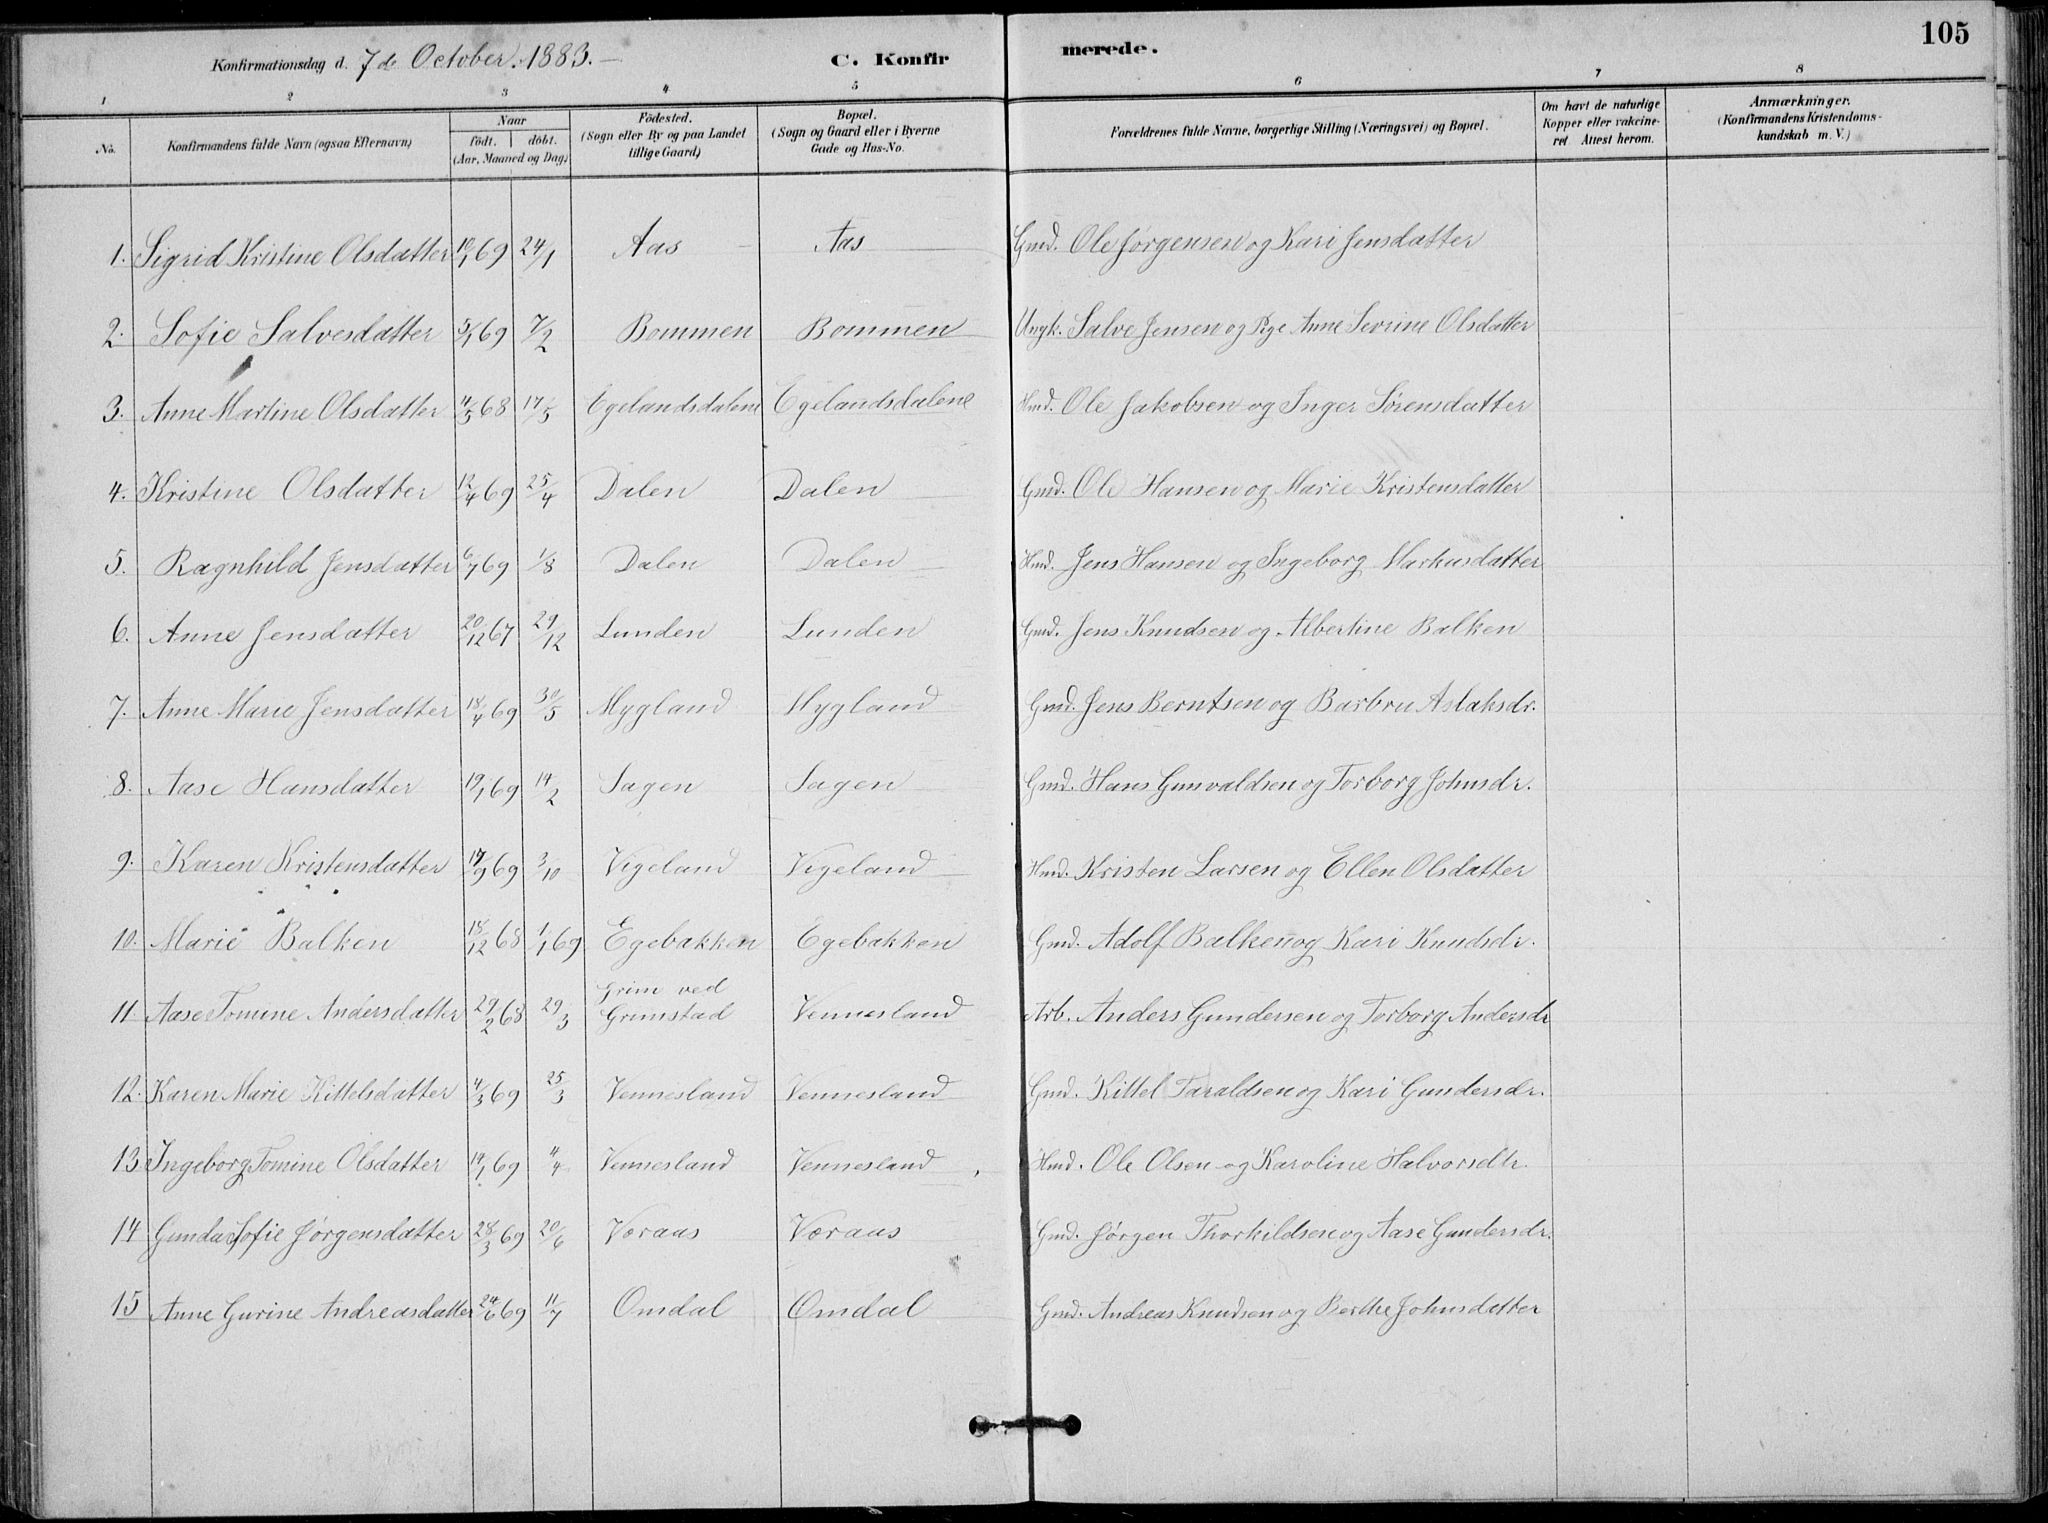 105
Konfirmationsdag d. 7de October. 1883. C. Konfirmerede.
1 2 3 4 5 6 7 8
No. Konfirmandens fulde Navn (ogsaa Efternavn) Naar födt. döbt. (Aar, Maaned og Dag) Födested. (Sogn eller By og paa Landet tillige Gaard) Bopæl. (Sogn og Gaard eller i Byerne Gade og Hus-No. Forældrenes fulde Navne, borgerlige Stilling (Næringsvei) og Bopæl. Om havt de naturlige Kopper eller vakcineret Attest herom. Anmærkninger. (Konfirmandens Kristendomskundskab m. V.)
1. Sigrid Kristine Olsdatter 10/1 69 24/1 Aas Aas Gmd. Ole Jørgensen og Kari Jensdatter
2. Sofie Salvesdatter 5/1 69 7/2 Bommen Bommen Ungk. Salve Jensen og Pge Anne Sevrine Olsdatter
3. Anne Martine Olsdatter 11/5 68 17/5 Egelandsdalene Egelandsdalene Hmd. Ole Jakobsen og Inger Sørensdatter
4. Kristine Olsdatter 12/4 69 25/4 Dalen Dalen Gmd. Ole Hansen og Marie Kristensdatter
5. Ragnhild Jensdatter 6/7 69 1/8 Dalen Dalen Hmd. Jens Hansen og Ingeborg Markusdatter
6. Anne Jensdatter 20/12 67 29/12 Lunden Lunden Gmd. Jens Knudsen og Albertine Balken
7. Anne Marie Jensdatter 18/4 69 30/5 Mygland Mygland Gmd. Jens Berntsen og Barbru Aslaksdr.
8. Aase Hansdatter 19/1 69 14/2 Sagen Sagen Gmd. Hans Gunvaldsen og Torborg Johnsdr.
9. Karen Kristensdatter 17/9 69 3/10 Vigeland Vigeland Hmd. Kristen Larsen og Ellen Olsdatter
10. Marie Balken 18/12 68 1/1 69 Egebakken Egebakken Gmd. Adolf Balken og Kari Knudsdr.
11. Aase Tomine Andersdatter 29/2 68 29/3 Grim ved Grimstad Vennesland Arb. Anders Gundersen og Torborg Andersdr
12. Karen Marie Kittelsdatter 4/3 69 25/3 Vennesland Vennesland Gmd. Kittel Taraldsen og Kari Gundersdr.
13 Ingeborg Tomine Olsdatter 14/1 69 4/4 Vennesland Vennesland Hmd. Ole Olsen og Karoline Halvorsdtr.
14 Gunda Sofie Jørgensdatter 28/3 69 20/6 Væraas Væraas Gmd. Jørgen Thorkildsen og Aase Gundersdr.
15 Anne Gurine Andreasdatter 24/6 69 11/7 Omdal Omdal Gmd. Andreas Knudsen og Berthe Johnsdatter